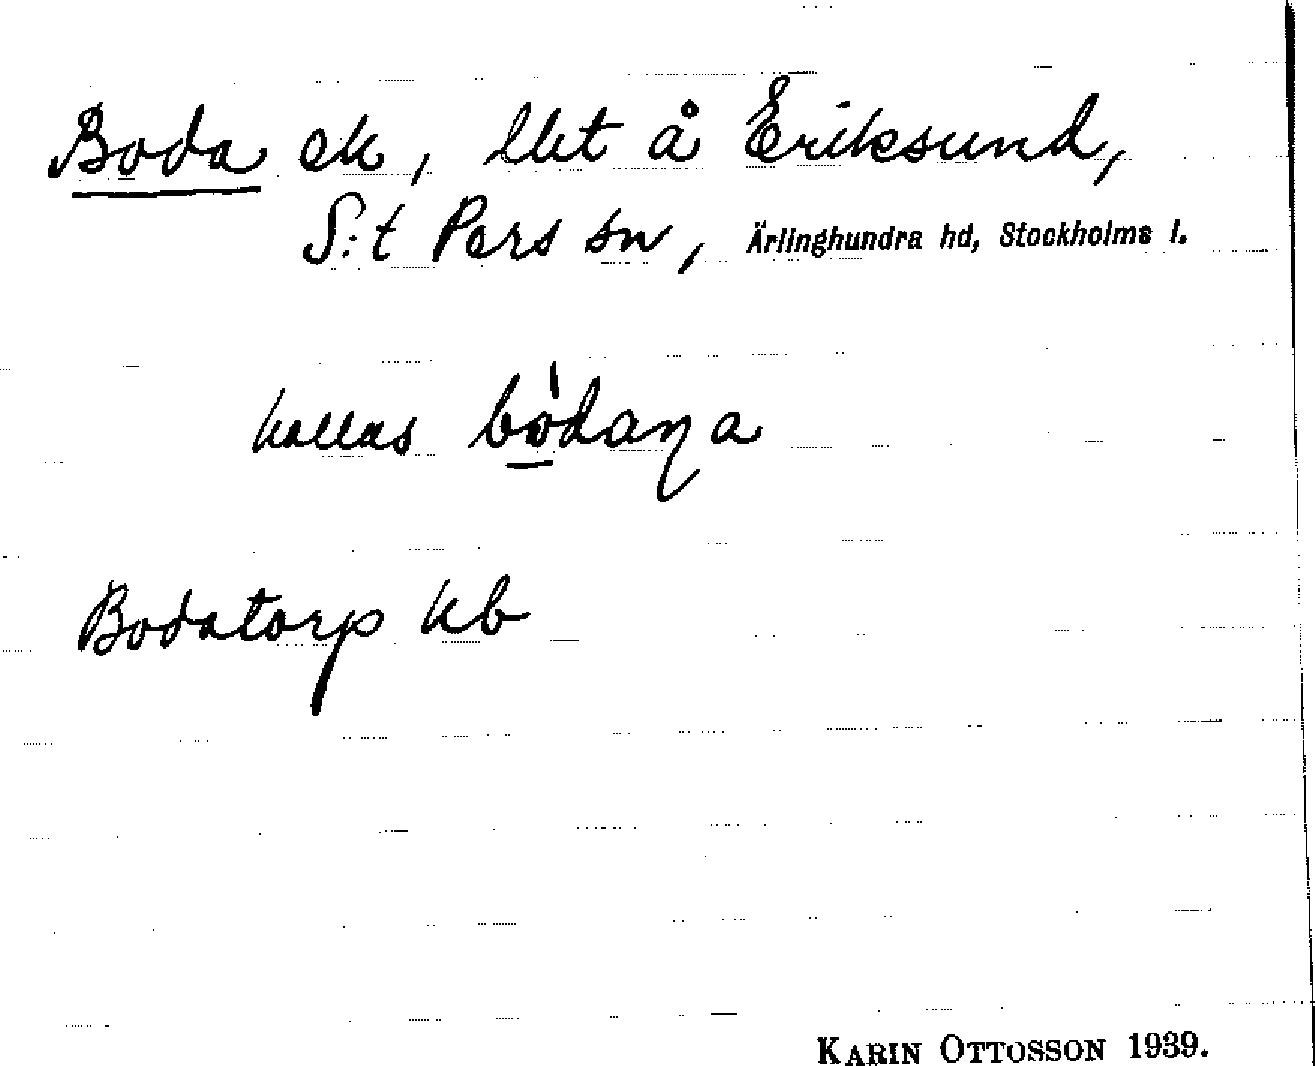 Boda ek, lht å Eriksund,
S:t Pers sn, Ärlinghundra hd, Stockholms l.
kallas bo̱̍daŋa
Bodatorp kb
KARIN OTTOSSON 1939.